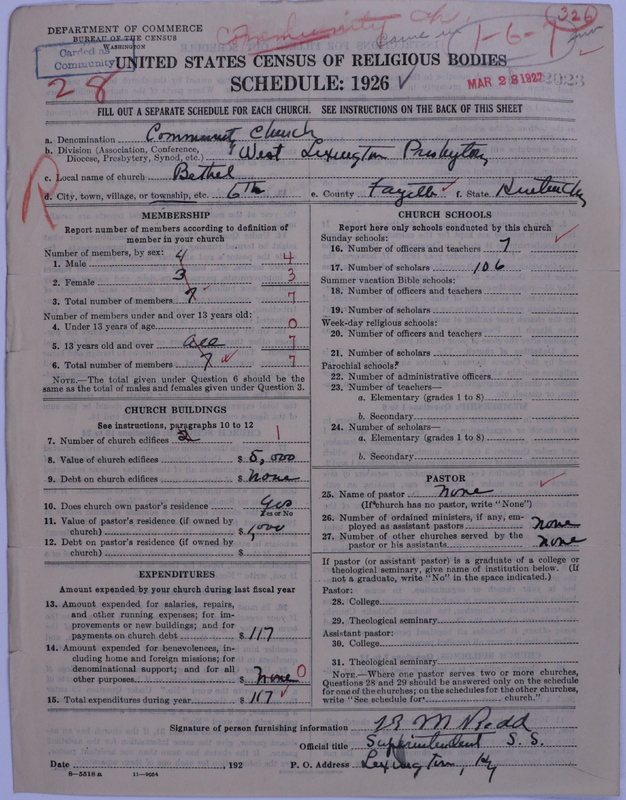 DEPARTMENT OF COMMERCE
BUREAU OF THE CENSUS
WASHINGTON
Community Ch.
came in
1-6-1
326
Carded as
Community
28
UNITED STATES CENSUS OF RELIGIOUS BODIES
SCHEDULE: 1926 ✓
MAR 28 1927
2023
FILL OUT A SEPARATE SCHEDULE FOR EACH CHURCH. SEE INSTRUCTIONS ON THE BACK OF THIS SHEET
a. Denomination Communit Church
b. Division (Association, Conference, Diocese, Presbytery, Synod, etc.) West Lexington Presbytery
c. Local name of church Bethel
R
d. City, town, village, or township, etc. 6th e. County Fayette ✓ f. State Kentucky
MEMBERSHIP
Report number of members according to definition of
member in your church
Number of members, by sex:
1. Male 4 4
2. Female 3 3
3. Total number of members 7 7
Number of members under and over 13 years old:
4. Under 13 years of age 0
5. 13 years old and over all 7
6. Total number of members 7 ✓ 7
NOTE.—The total given under Question 6 should be the
same as the total of males and females given under Question 3.
CHURCH BUILDINGS
See instructions, paragraphs 10 to 12
7. Number of church edifices 2 1
8. Value of church edifices $ 5,000
9. Debt on church edifices $ None
10. Does church own pastor's residence Yes
Yes or No
11. Value of pastor's residence (if owned by
church) $ 1,000
12. Debt on pastor's residence (if owned by
church) $
EXPENDITURES
Amount expended by your church during last fiscal year
13. Amount expended for salaries, repairs,
and other running expenses; for im-
provements or new buildings; and for
payments on church debt $ 117
14. Amount expended for benevolences, in-
cluding home and foreign missions; for
denominational support; and for all
other purposes $ None 0
15. Total expenditures during year $ 117 ✓
CHURCH SCHOOLS
Report here only schools conducted by this church
Sunday schools:
16. Number of officers and teachers 7 ✓
17. Number of scholars 106
Summer vacation Bible schools:
18. Number of officers and teachers
19. Number of scholars
Week-day religious schools:
20. Number of officers and teachers
21. Number of scholars
Parochial schools:
22. Number of administrative officers
23. Number of teachers—
a. Elementary (grades 1 to 8)
b. Secondary
24. Number of scholars—
a. Elementary (grades 1 to 8)
b. Secondary
PASTOR
25. Name of pastor None ✓
(If church has no pastor, write "None")
26. Number of ordained ministers, if any, em-
ployed as assistant pastors None
27. Number of other churches served by the
pastor or his assistants None
If pastor (or assistant pastor) is a graduate of a college or
theological seminary, give name of institution below. (If
not a graduate, write "No" in the space indicated.)
Pastor:
28. College
29. Theological seminary
Assistant pastor:
30. College
31. Theological seminary
NOTE.—Where one pastor serves two or more churches,
Questions 28 and 29 should be answered only on the schedule
for one of the churches; on the schedules for the other churches,
write "See schedule for church."
Signature of person furnishing information R M Redd
Official title Superintendent S. S.
Date , 192 P. O. Address Lexington, Ky
8—5518 a 11—9054